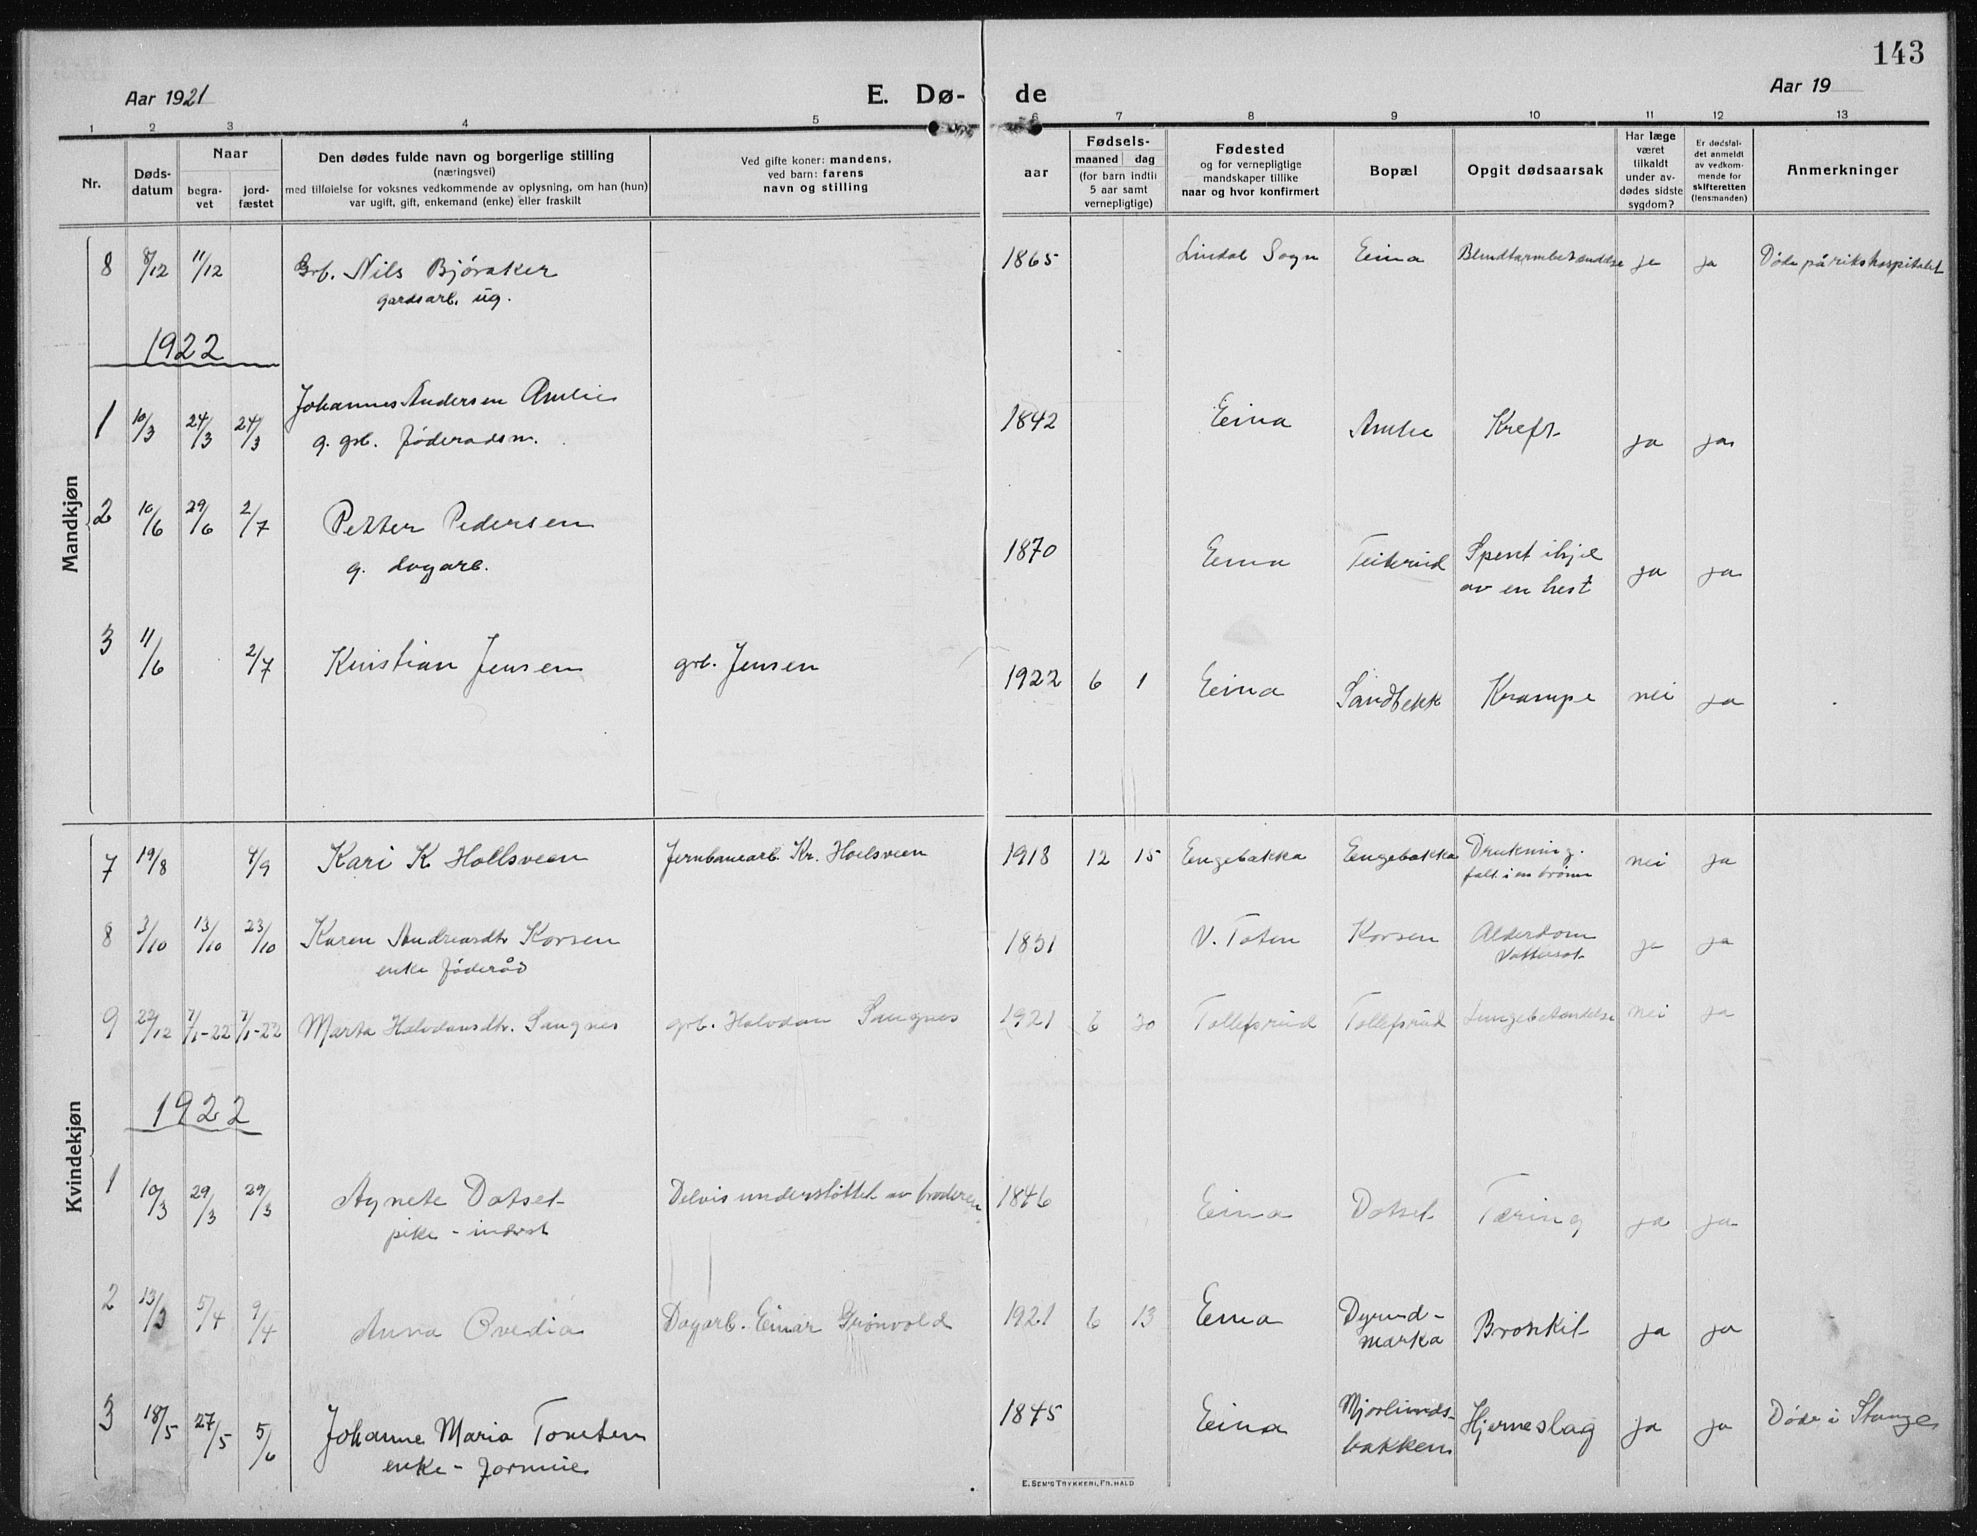 143
Aar 1921
E. Dø- de
Aar 19
1 2 3 4 5 6 7 8 9 10 11 12 13
Nr.
Døds-
datum
Naar
begra-
vet
jord-
fæstet
Den dødes fulde navn og borgerlige stilling
(næringsvei)
med tilføielse for voksnes vedkommende av oplysning, om han (hun)
var ugift, gift, enkemand (enke) eller fraskilt
Ved gifte koner: mandens,
ved barn: farens
navn og stilling
aar
Fødsels-
maaned dag
(for barn indtil
5 aar samt
vernepligtige)
Fødested
og for vernepligtige
mandskaper tillike
naar og hvor konfirmert
Bopæl
Opgit dødsaarsak
Har læge
været
tilkaldt
under av-
dødes sidste
sygdom?
Er dødsfal-
det anmeldt
av vedkom-
mende for
skifteretten
(lensmanden)
Anmerkninger
Mandkjøn
8 8/12 11/12 Grb. Nils Bjøraker 1865 Lindal Sogn Eina Blindtarmbetændelse ja ja Døde på rikshospitalet
gardsarb. ug.
1922
1 10/3 24/3 24/3 Johannes Andersen Amlie 1842 Eina Amlie Kreft ja ja
g. grb. føderadsm.
2 10/6 29/6 2/7 Petter Pedersen 1870 Eina Teiterud Spent ihjel ja ja
g. dagarb. av en hest
3 11/6 2/7 Kristian Jensen grb. Jensen 1922 6 1 Eina Sandbekk Krampe nei ja
Kvindekjøn
7 19/8 4/9 Kari K Hollsveen Jernbanearb. Kr. Hoelsveen 1918 12 15 Eengebakka Eengebakka Drukning. nei ja
falt i en brønn
8 3/10 13/10 23/10 Karen Andreasdtr Korsen 1831 V. Toten Korsen Alderdom ja ja
enke føderåd Vattersot
9 22/12 7/1-22 7/1-22 Marta Halvdansdtr. Sangnes grb. Halvdan Sangnes 1921 6 20 Tollefsrud Tollefsrud Lungebetændelse nei ja
1922
1 10/3 29/3 29/3 Agnete Dotset Delvis understøttet av broderen 1846 Eina Dotset Tæring ja ja
pike - inderst
2 13/3 5/4 9/4 Anna Ovedia Dagarb. Einar Grønvold 1921 6 13 Eina Dyrud- Bronkit ja ja
marka
3 18/5 27/5 5/6 Johanne Maria Tomten 1845 Eina Mjørlunds- Hjerneslag ja ja Døde i Stange
enke - bakken
E. Sem's Trykkeri, Fr.hald